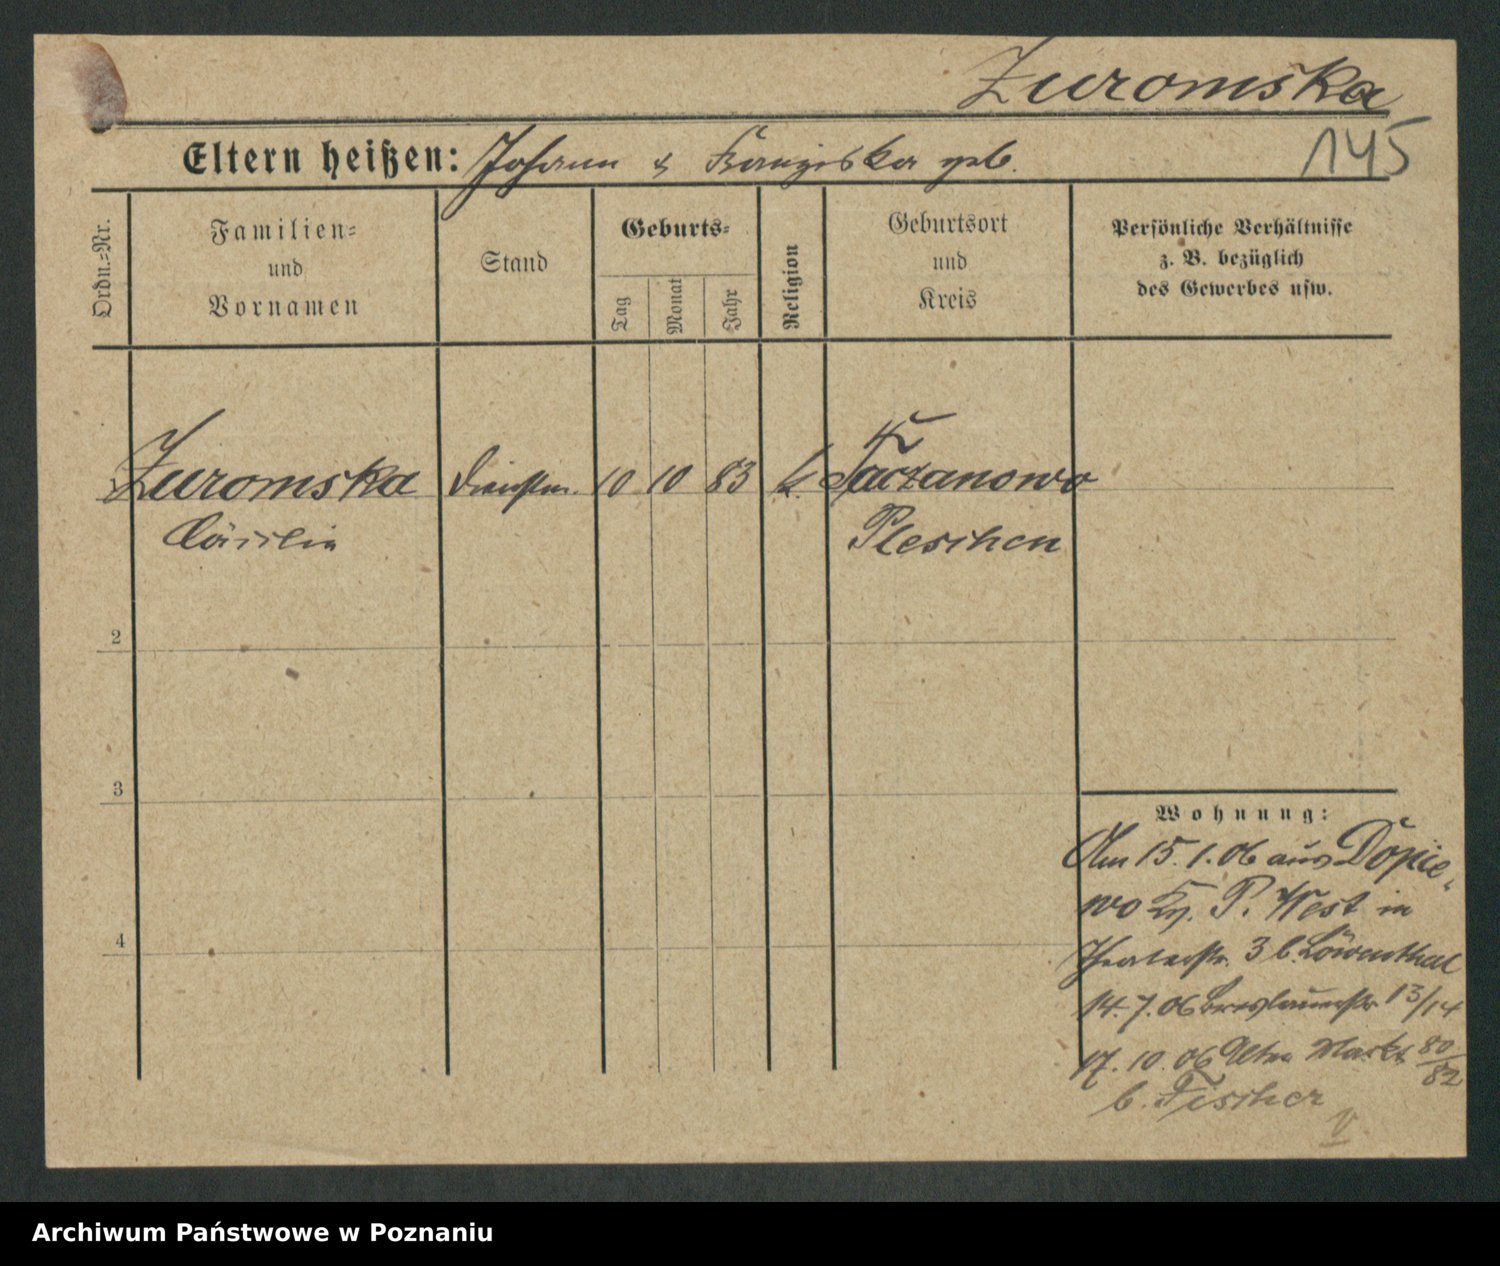 Zuromska
145
Eltern heißen: Johann & Franziska geb.
Ordn.-Nr.
Familien- und Vornamen
Stand
Geburts-
Tag
Monat
Jahr
Religion
Geburtsort und Kreis
Persönliche Verhältnisse
z. B. bezüglich
des Gewerbes usw.
Zuromska Dienstm. 10 10 83 k. Taczanowo
Cäcilie Pleschen
2
3
4
Wohnung:
Am 15.1.06 aus Dopie-
wo Kr. P. West in
Theaterstr. 3 b. Löwenthal
14.7.06 Breslauerstr. 13/14
17.10.06 Alter Markt 80/82
b. Fischer
Archiwum Państwowe w Poznaniu